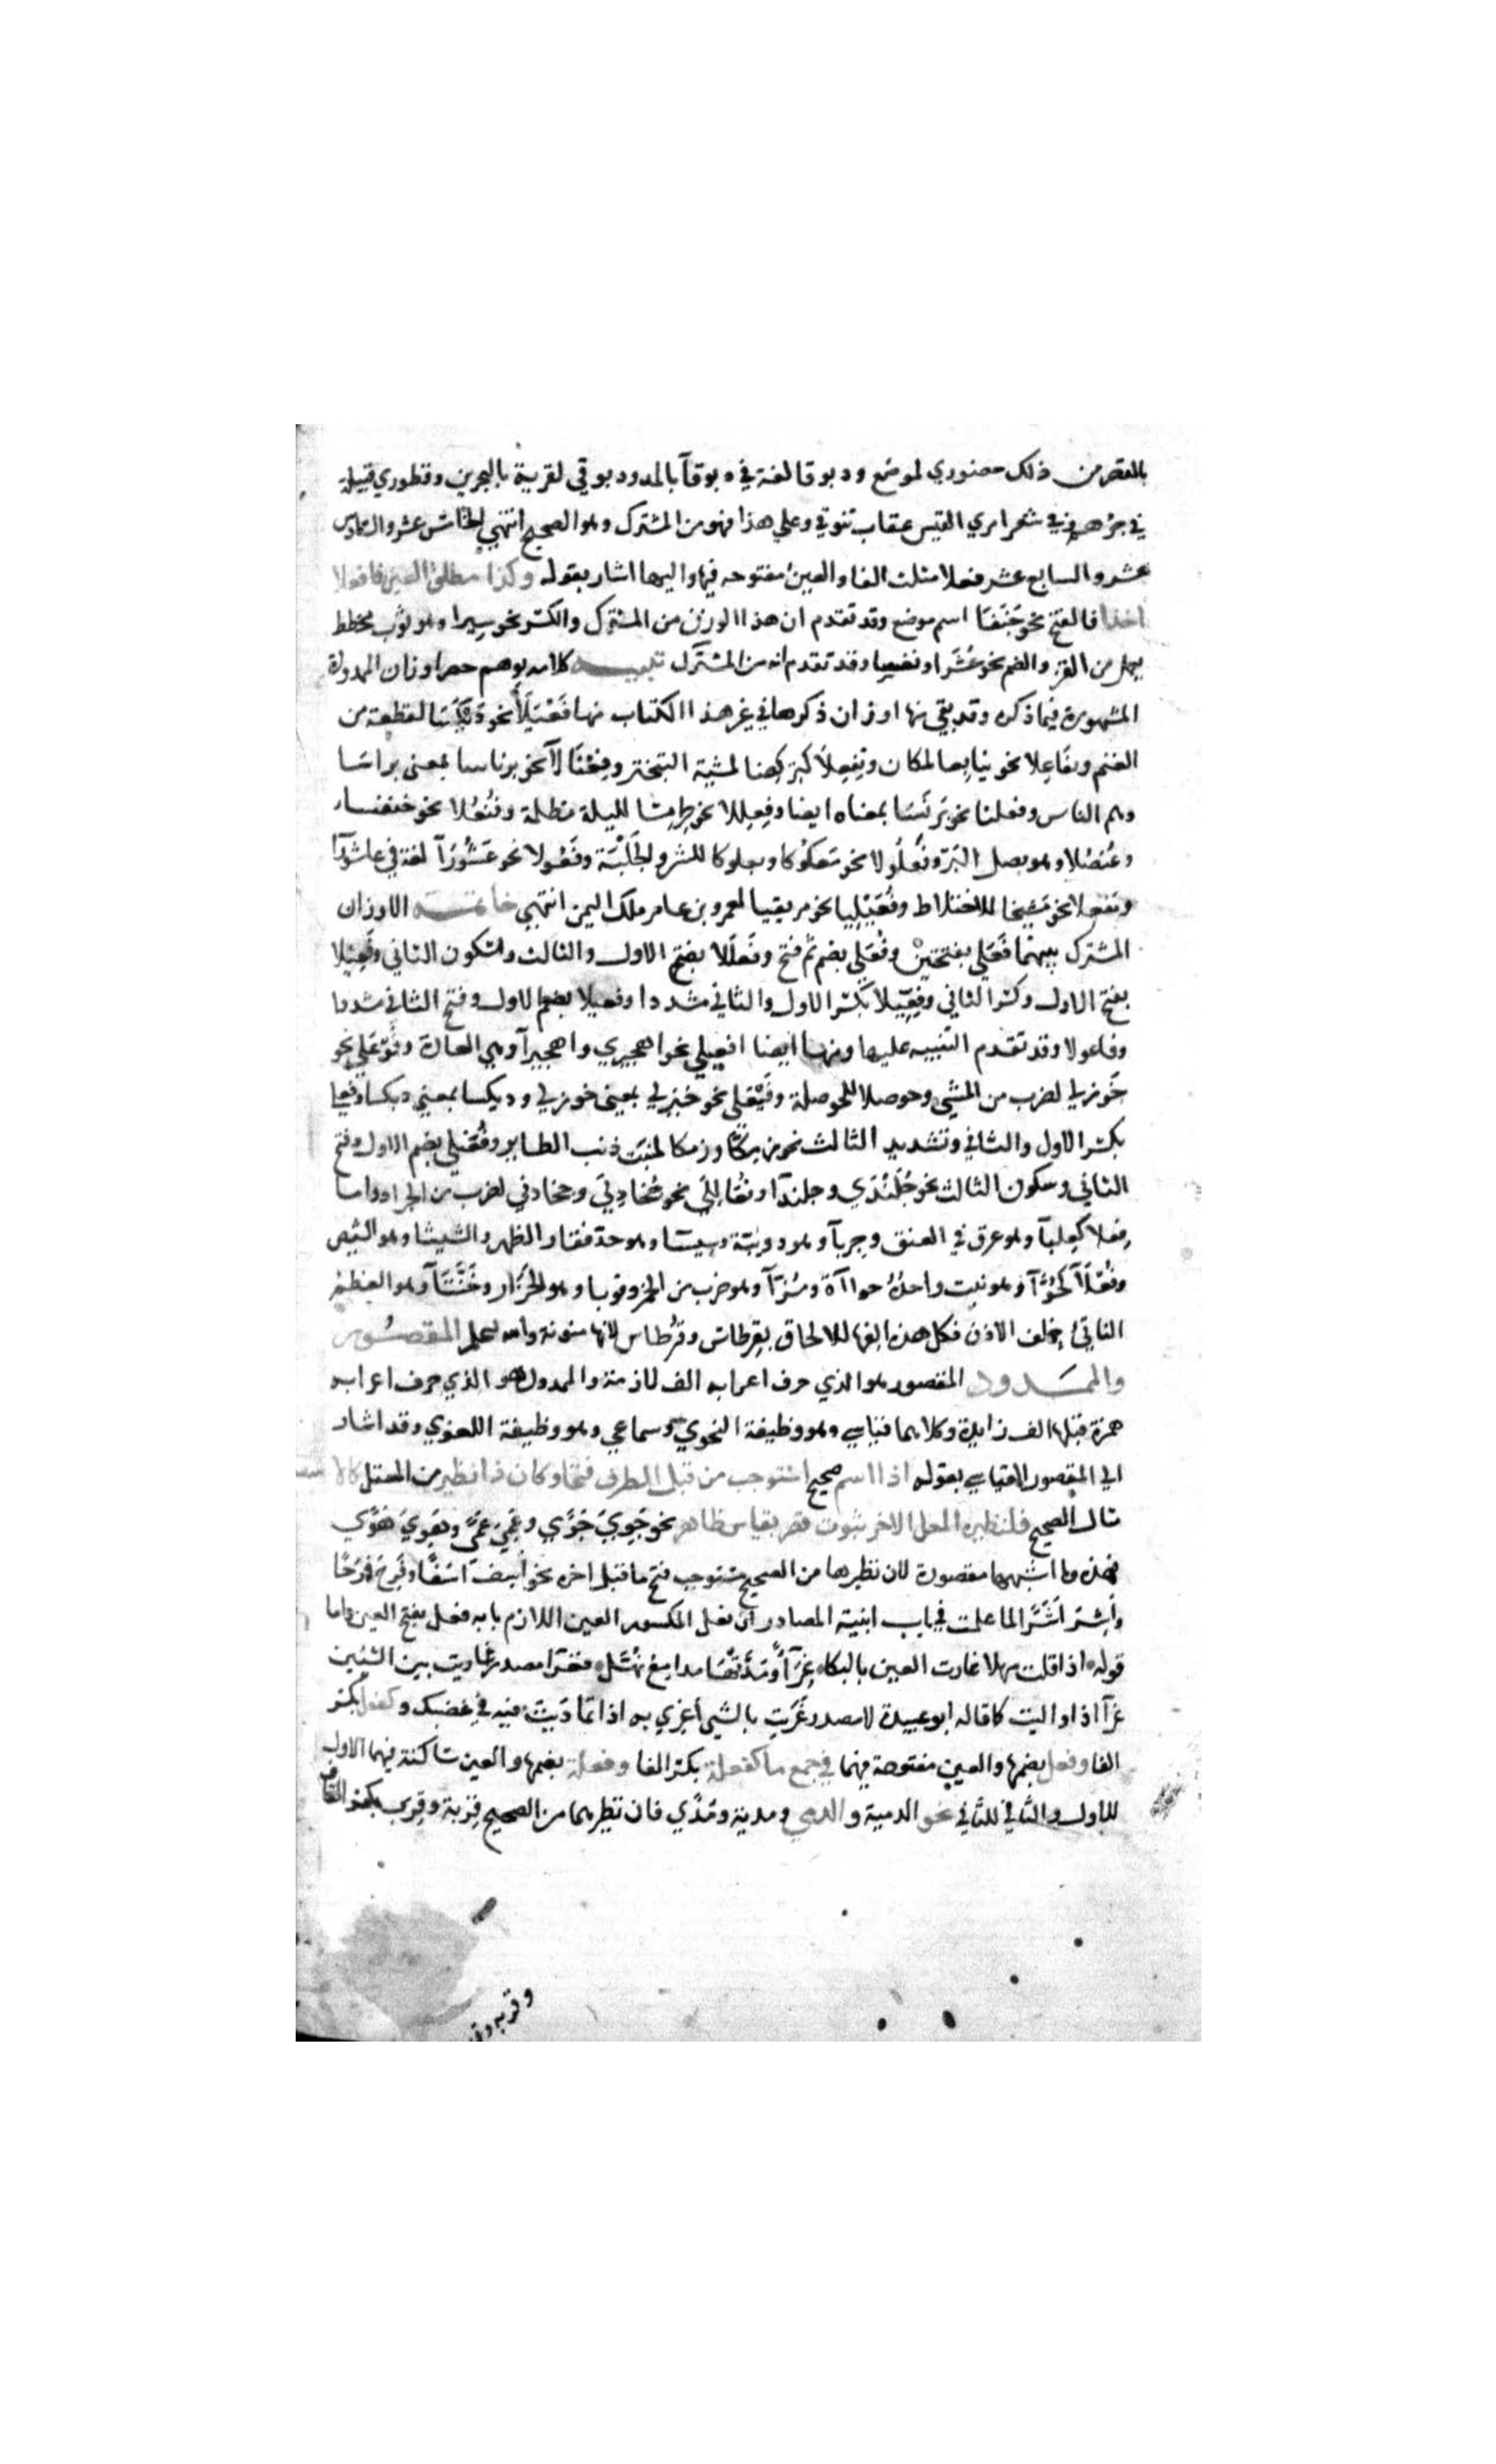 بالقصر من ذلك حضوري لموضع ودبوقا لغة في دبوقآ بالمد ودبوقي لقرية بالبحرين وقطوري قبيلة
في جرهم وفي شعر امري القيس عقاب تنوفي وعلي هذا فهو من المشترك وهو الصحيح انتهي الخامس عشر والسادس
عشر والسابع عشر فعلا مثلث الفا والعين مفتوحه فيها واليها اشار بقوله وكذا مطلق العين فا فعلا
اخذا فالفتح نحو جَنَفَا اسم موضع وقد تقدم ان هذا الوزن من المشترك والكسر نحو سيرا وهو ثوب مخطط
يعمل من القز والضم نحو عُشَرا ونفسا وقد تقدم انه من المشترك تنبيه كلامه يوهم حصر اوزان الممدودة
المشهورة فيما ذكره وقد بقي منها اوزان ذكرها في غير هذا الكتاب منها فَعْيَلَآ نحو دَيْكَسَا لقطعة من
الغنم ويفاعلا نحو ينابعا لمكان وتفعلا كتركضا لمشية التبختر وفعنالآ نحو برناسا بمعنى براسا
وهم الناس وفعللا نحو برنسا بمعناه ايضا وفعللا نحو طرمسا لليلة مظلمة وفُنْعُلا نحو خنفسا
وعُنصُلا وهو بصل البر وفَعْلُولا نحو معكوكا وبعلوكا للشر والجَلَبَة وفَعُولا نحو عَشُورَآ لغة في عاشورآ
ومفعلا نحو مَشيخا للاختلاط وفُعَيْلِيا نحو مزيقيا لعمرو بن عامر ملك اليمن انتهي خاتمه الاوزان
المشترك بينهما فَعَلي بفتحتين وفُعَلي بضم ثم فتح وفَعْلَلا بفتح الاول والثالث وسكون الثاني وفَعِيلا
بفتح الاول وكسر الثاني وفِعِّيلا بكسر الاول والثاني مشددا وفعيلا بضم الاول وفتح الثاني مشددا
وفاعولا وقد تقدم التنبيه عليها ومنها ايضا افعيلي نحو اهجيري واهجيرآ وهي العادة وفَوْعَلي نحو
خَوزلي لضرب من المشي وحوصلا للحوصلة وفَيْعَلي نحو خيزلي بمعنى خوزلي وديكسا بمعني ديكسا وفعلي
بكسر الاول والثاني وتشديد الثالث نحو زمكا وزمكا لمنبت ذنب الطاير وفُعَنْلي بضم الاول وفتح
الثاني وسكون الثالث نحو جُلَنْدَي وجلندآ وفُعَاللي نحو جُخادِبي وجخادبي لضرب من الجراد واما
فِعلا كعِلبآ وهو عرق في العنق وحِربآ وهو دويبة وسيسا وهو حد فقار الظهر والشيشا وهو الشيص
وفُعّلآ كحُوّآ وهو نبت واحدُه حواآة ومُزّآ وهو ضرب من الخمر وقوبا وهو الحزاز وخُشّآ وهو العظم
الناتئ خلف الاذن فكل هذه الفها للالحاق بقرطاس وقُرطاس لانها منونة والله اعلم المقصور
والممدود المقصور هو الذي حرف اعرابه الف لازمة والممدود هو الذي حرف اعرابه
همزة قبلها الف زايدة وكلاهما قياسي وهو وظيفة النحوي وسماعي وهو وظيفة اللغوي وقد اشار
الي المقصور القياسي بقوله اذا اسم صحيح استوجب من قبل الطرف فتحا وكان ذا نظير من المعتل كالاسف
مثال الصحيح فلنظيره المعل الاخر ثبوت قصر بقياس ظاهر نحو جَوِيَ جَوًي وعَمِيَ عَمًي وهَوِيَ هَوًي
فهذه وما اشبهها مقصورة لان نظيرها من الصحيح مستوجب فتح ما قبل اخره نحو أسِفَ اسَفًا وفَرِحَ فَرَحًا
وأشِرَ أشَرًا لما علمت في باب ابنية المصادر ان فعل المكسور العين اللازم بابه فعل بفتح العين واما
قوله اذا قلت مهلا غارت العين بالبكا غِرَآءً ومَدّتها مدامع نُهّل فغرا مصدر غاريت بين الشيئين
غرآ اذا واليت كما قاله ابو عبيدة لا مصدر غَرِيت بالشي أغري به اذا تماديت فيه في غضبك وكفعل بكسر
الفا وفعل بضمها والعين مفتوحة فيهما في جمع ما كفعلة بكسر الفا وفعلة بضمها والعين ساكنة فيهما الاول
للاول والثاني للثاني نحو الدمية والدمي ومدية ومُدًي فان نظيرهما من الصحيح قِربة وقِرب بكسر القاف
وقربه